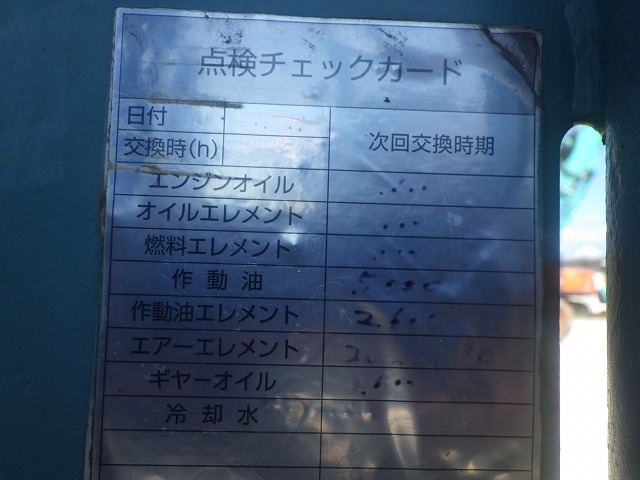 点検チェックカード
日付
交換時(h)
次回交換時期
エンジンオイル
オイルエレメント
燃料エレメント
作動油
作動油エレメント 2.600
エアーエレメント
ギヤーオイル
冷却水